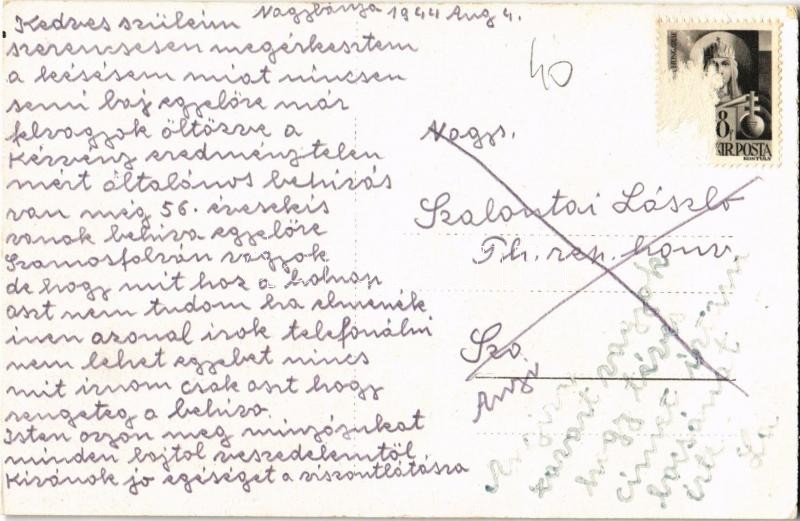 Nagybánya 1944 Aug 4.
Kedves szüleim
szerencsésen megérkeztem
a késésem miat nincsen
semi baj egyelőre már
felvagyok öltözve a
Kérvény eredménytelen
mért általános behivás
van még 56. évesekis
vanak behiva egyelőre
Szamosfalván vagyok
de hogy mit hoz a holnap
aszt nem tudom ha elmenék
inen azonal irok telefonálni
nem lehet egyebet nincs
mit irnom csak aszt hogy
rengeteg a behivo.
Isten ozon meg minzójukat
minden bajtol veszedelemtöl
Kivánok jo egéséget a viszontlátásra
40
8f
MAGYAR KIR. POSTA
Nagys.
Szalontai László
Th. rep. honv.
Szo
zavart vagyok
hogy téves
cimet irtam
bocsánat